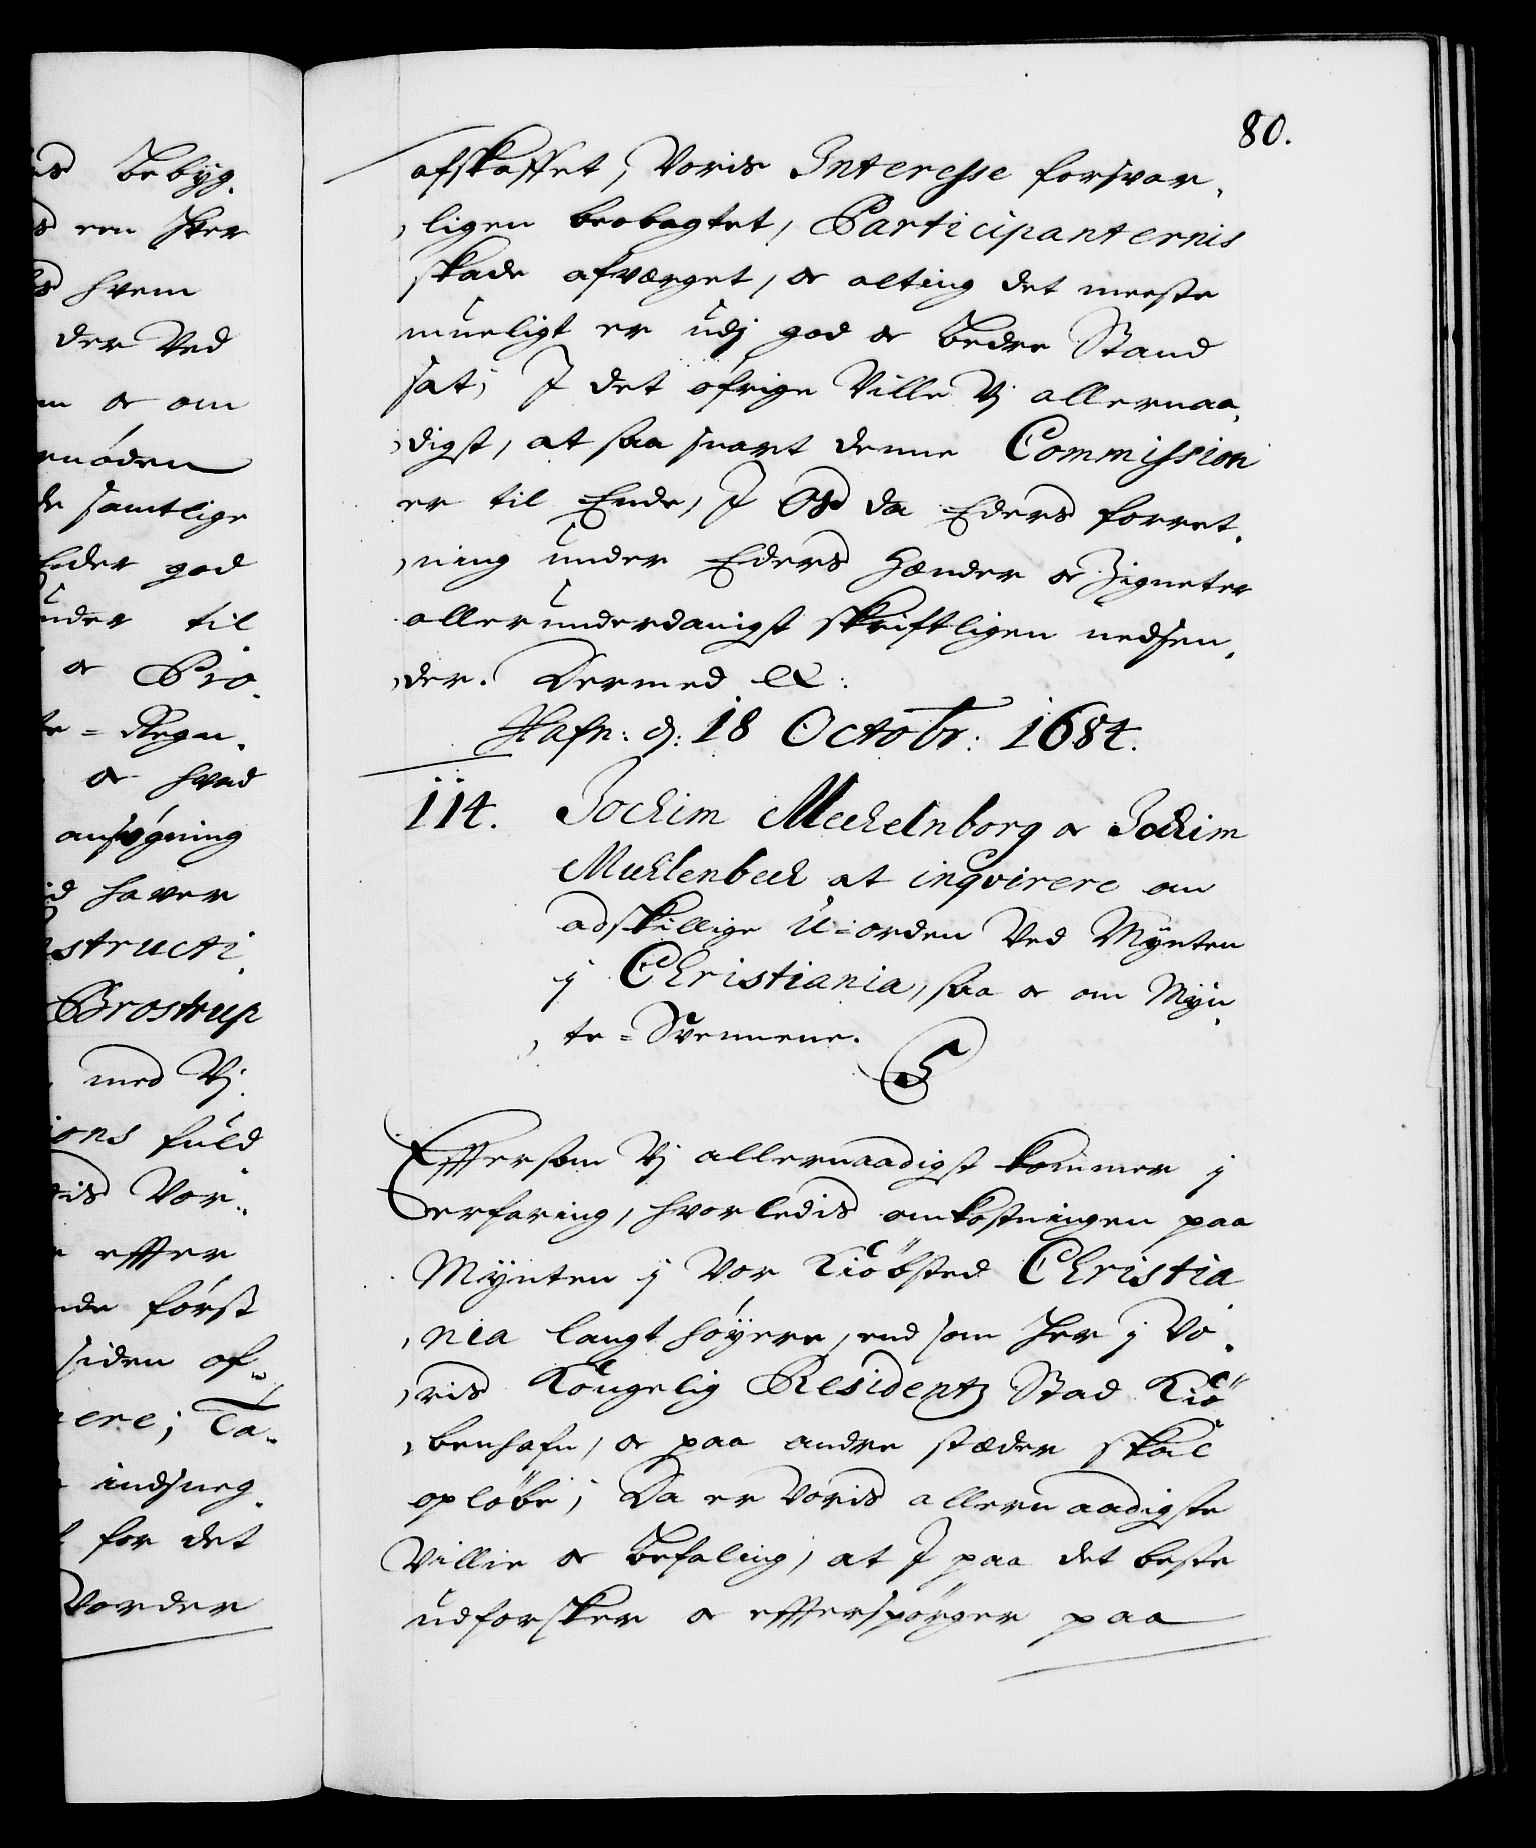 is bebyg.
s een Her
s hvem
der Ved
m oc om
rnöden
de samtlige
Eder god
under til
oc Pro.
te = Regn.
oc hvad
ansögning
id haver
structi.
Brostrup
med Vj
ions fuld
vis Vor..
effter
nde först
siden af..
ere; Ta..
indsneg.
for det
Vorder
80.
afskaffet, Voris Interesse forsvar,
,ligen beobagtet, Participanternis
skade afværget, oc alting det meeste
mueligt er udj god oc bedre Stand
sat; I det öfrige Ville Vj allernaa,
,digst, at saa snart denne Commission
er til Ende, I Os da Eders forret,
,ning under Eders Hænder oc Zigneter
allerunderdanigst skriftligen nedsen,
,der. Dermed &c:
Hafn: d: 18 Octobr: 1684.
114. Jochim Meckelnborg oc Jochim
Mucklenbeck at inqvirere om
adskillige U=orden Ved Mÿnten
j Christiania, saa oc om Mÿn,
,te=Svennene.
C5
Effersom Vj allernaadigst kommer j
erfaring, hvorledis omkostningen paa
Mÿnten j Vor Kiöbsted Christia
,nia langt höyere, end som her j Vo,
,ris Kongelig Residentz Stad Kiö
,benhafn, oc paa andre stæder skal
oplöbe; Da er Voris allernaadigste
Villie oc befaling, at I paa det beste
udforsker oc effterspörger paa